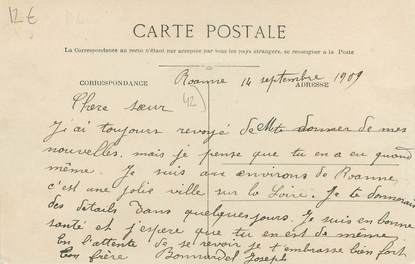 12 €
CARTE POSTALE
La Correspondance au recto n'étant pas acceptée par tous les pays étrangers, se renseigner à la Poste
CORRESPONDANCE
ADRESSE
Roanne 14 septembre 1909
Chere sœur
42
J'ai toujours de donner de mes
nouvelles, mais je pense que tu en a eu quand
même. Je suis aux environs de Roanne
c'est une jolie ville sur la Loire. Je te donnerais
des détails dans quelques jours. Je suis en bonne
santé et j'espere que tu en est de même.
En l'attente de se revoir je t'embrasse bien fort
Ton frère Bonnardel Joseph